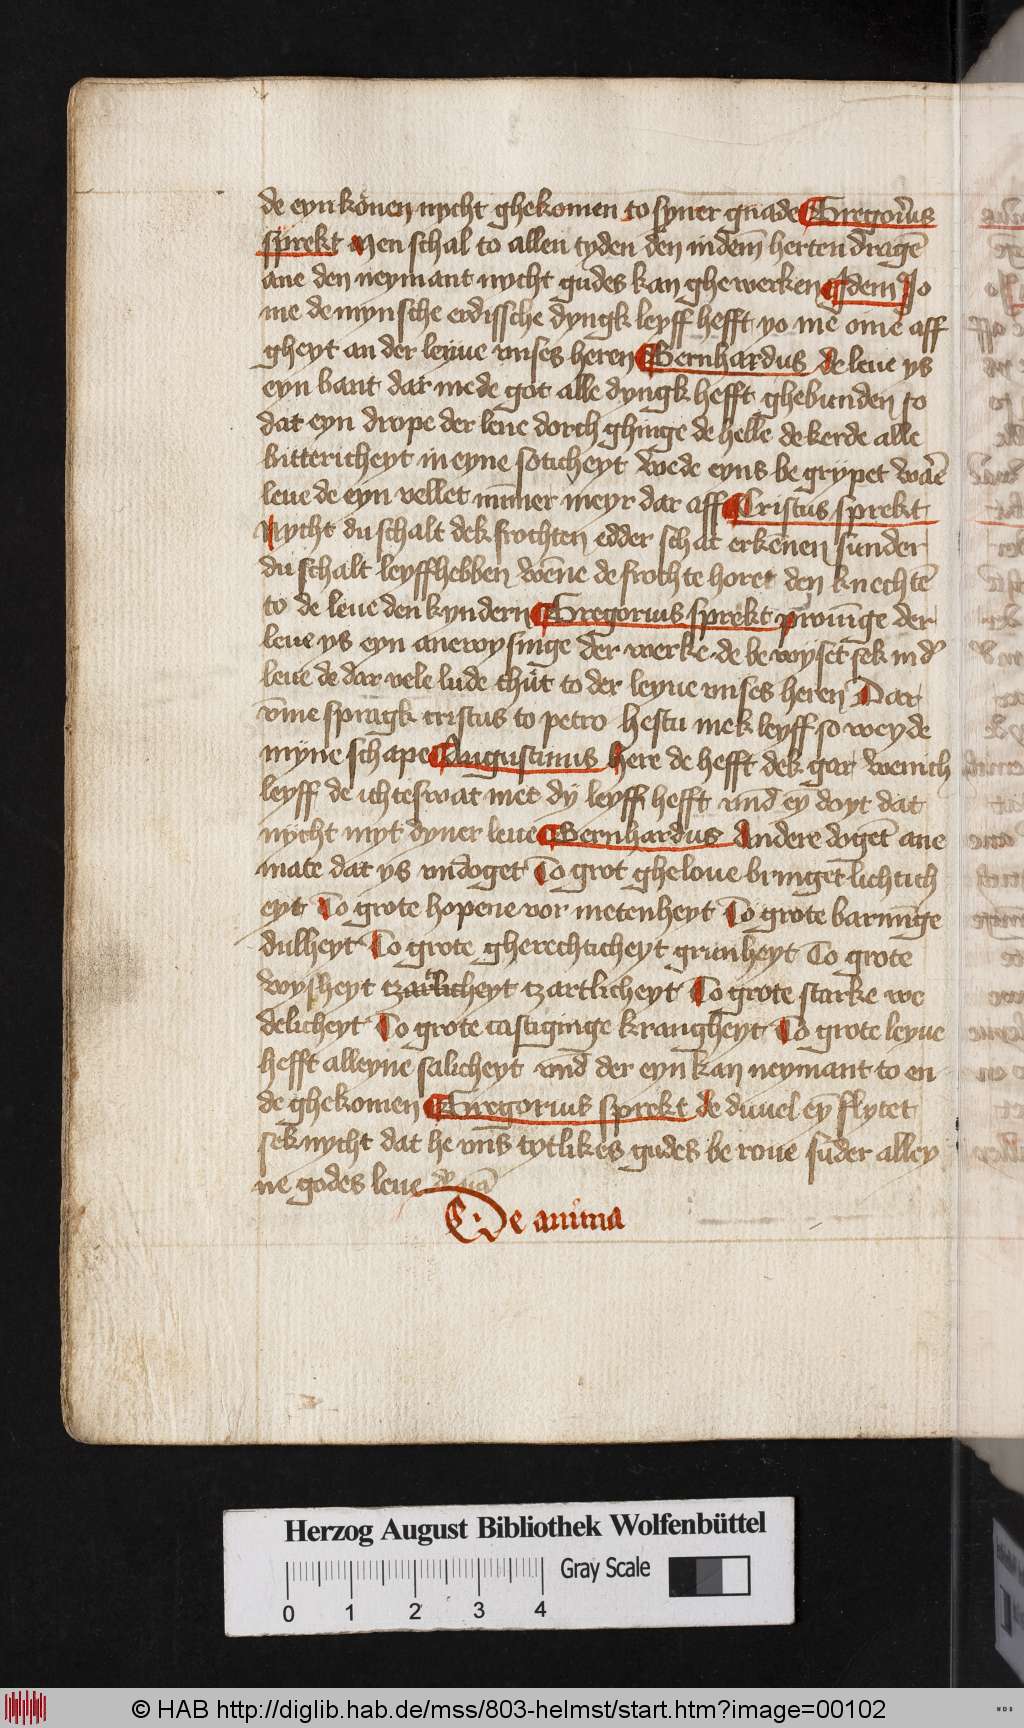 de eyn konen nycht ghekomen to syner gnade Gregorius
sprekt Men schal to allen tyden den in dem herten dragē
ane den neymant nycht gudes kan ghewerken Idem Jo
me de mynsche erdissche dyngk leyff hefft yo me ome aff
gheyt an der leyue vnses heren Bernhardus de leue ys
eyn bant dar mede got alle dyngk hefft ghebunden to
dat eyn drope der leue dorch ghinge de helle de kerde alle
bittericheyt in eyne soticheyt We de eyns begrypet wāē
leue de eyn vellet nūmer meyr dar aff Cristus sprekt
Nycht du schalt dek frochten edder schat erkēnen sunder
du schalt leyffhebben Wēne de frochte horet den knechtē
to de leue den kyndern Gregorius sprekt prouīge der
leue ys eyn anewysinge der werke de bewyset sek in d'
leue de dar vele lude thūt to der leyue vnses heren Dar
vme spragk cristus to petro hestu mek leyff so weyde
myne schape Augustinus here de hefft dek gar wenich
leyff de ichteswat met dy leyff hefft vnd ey doyt dat
nycht myt dyner leue Bernhardus Andere dogēt ane
mate dat ys vndoget To grot gheloue bringet lichtich
eyt To grote hopene vor metenheyt To grote barmīge
dulheyt To grote gherechticheyt grimheyt To grote
wysheyt tzarlicheyt tzartlicheyt To grote starke we
delicheyt To grote castiginge krangheyt To grote leyue
hefft alleyne salicheyt vnd der eyn kan neymant to en
de ghekomen Gregorius sprekt de duuel ey flytet
sek nycht dat he vns tytlikes gudes beroue sūder alley
ne godes leue
De anima
Herzog August Bibliothek Wolfenbüttel
Gray Scale
0 1 2 3 4
© HAB http://diglib.hab.de/mss/803-helmst/start.htm?image=00102